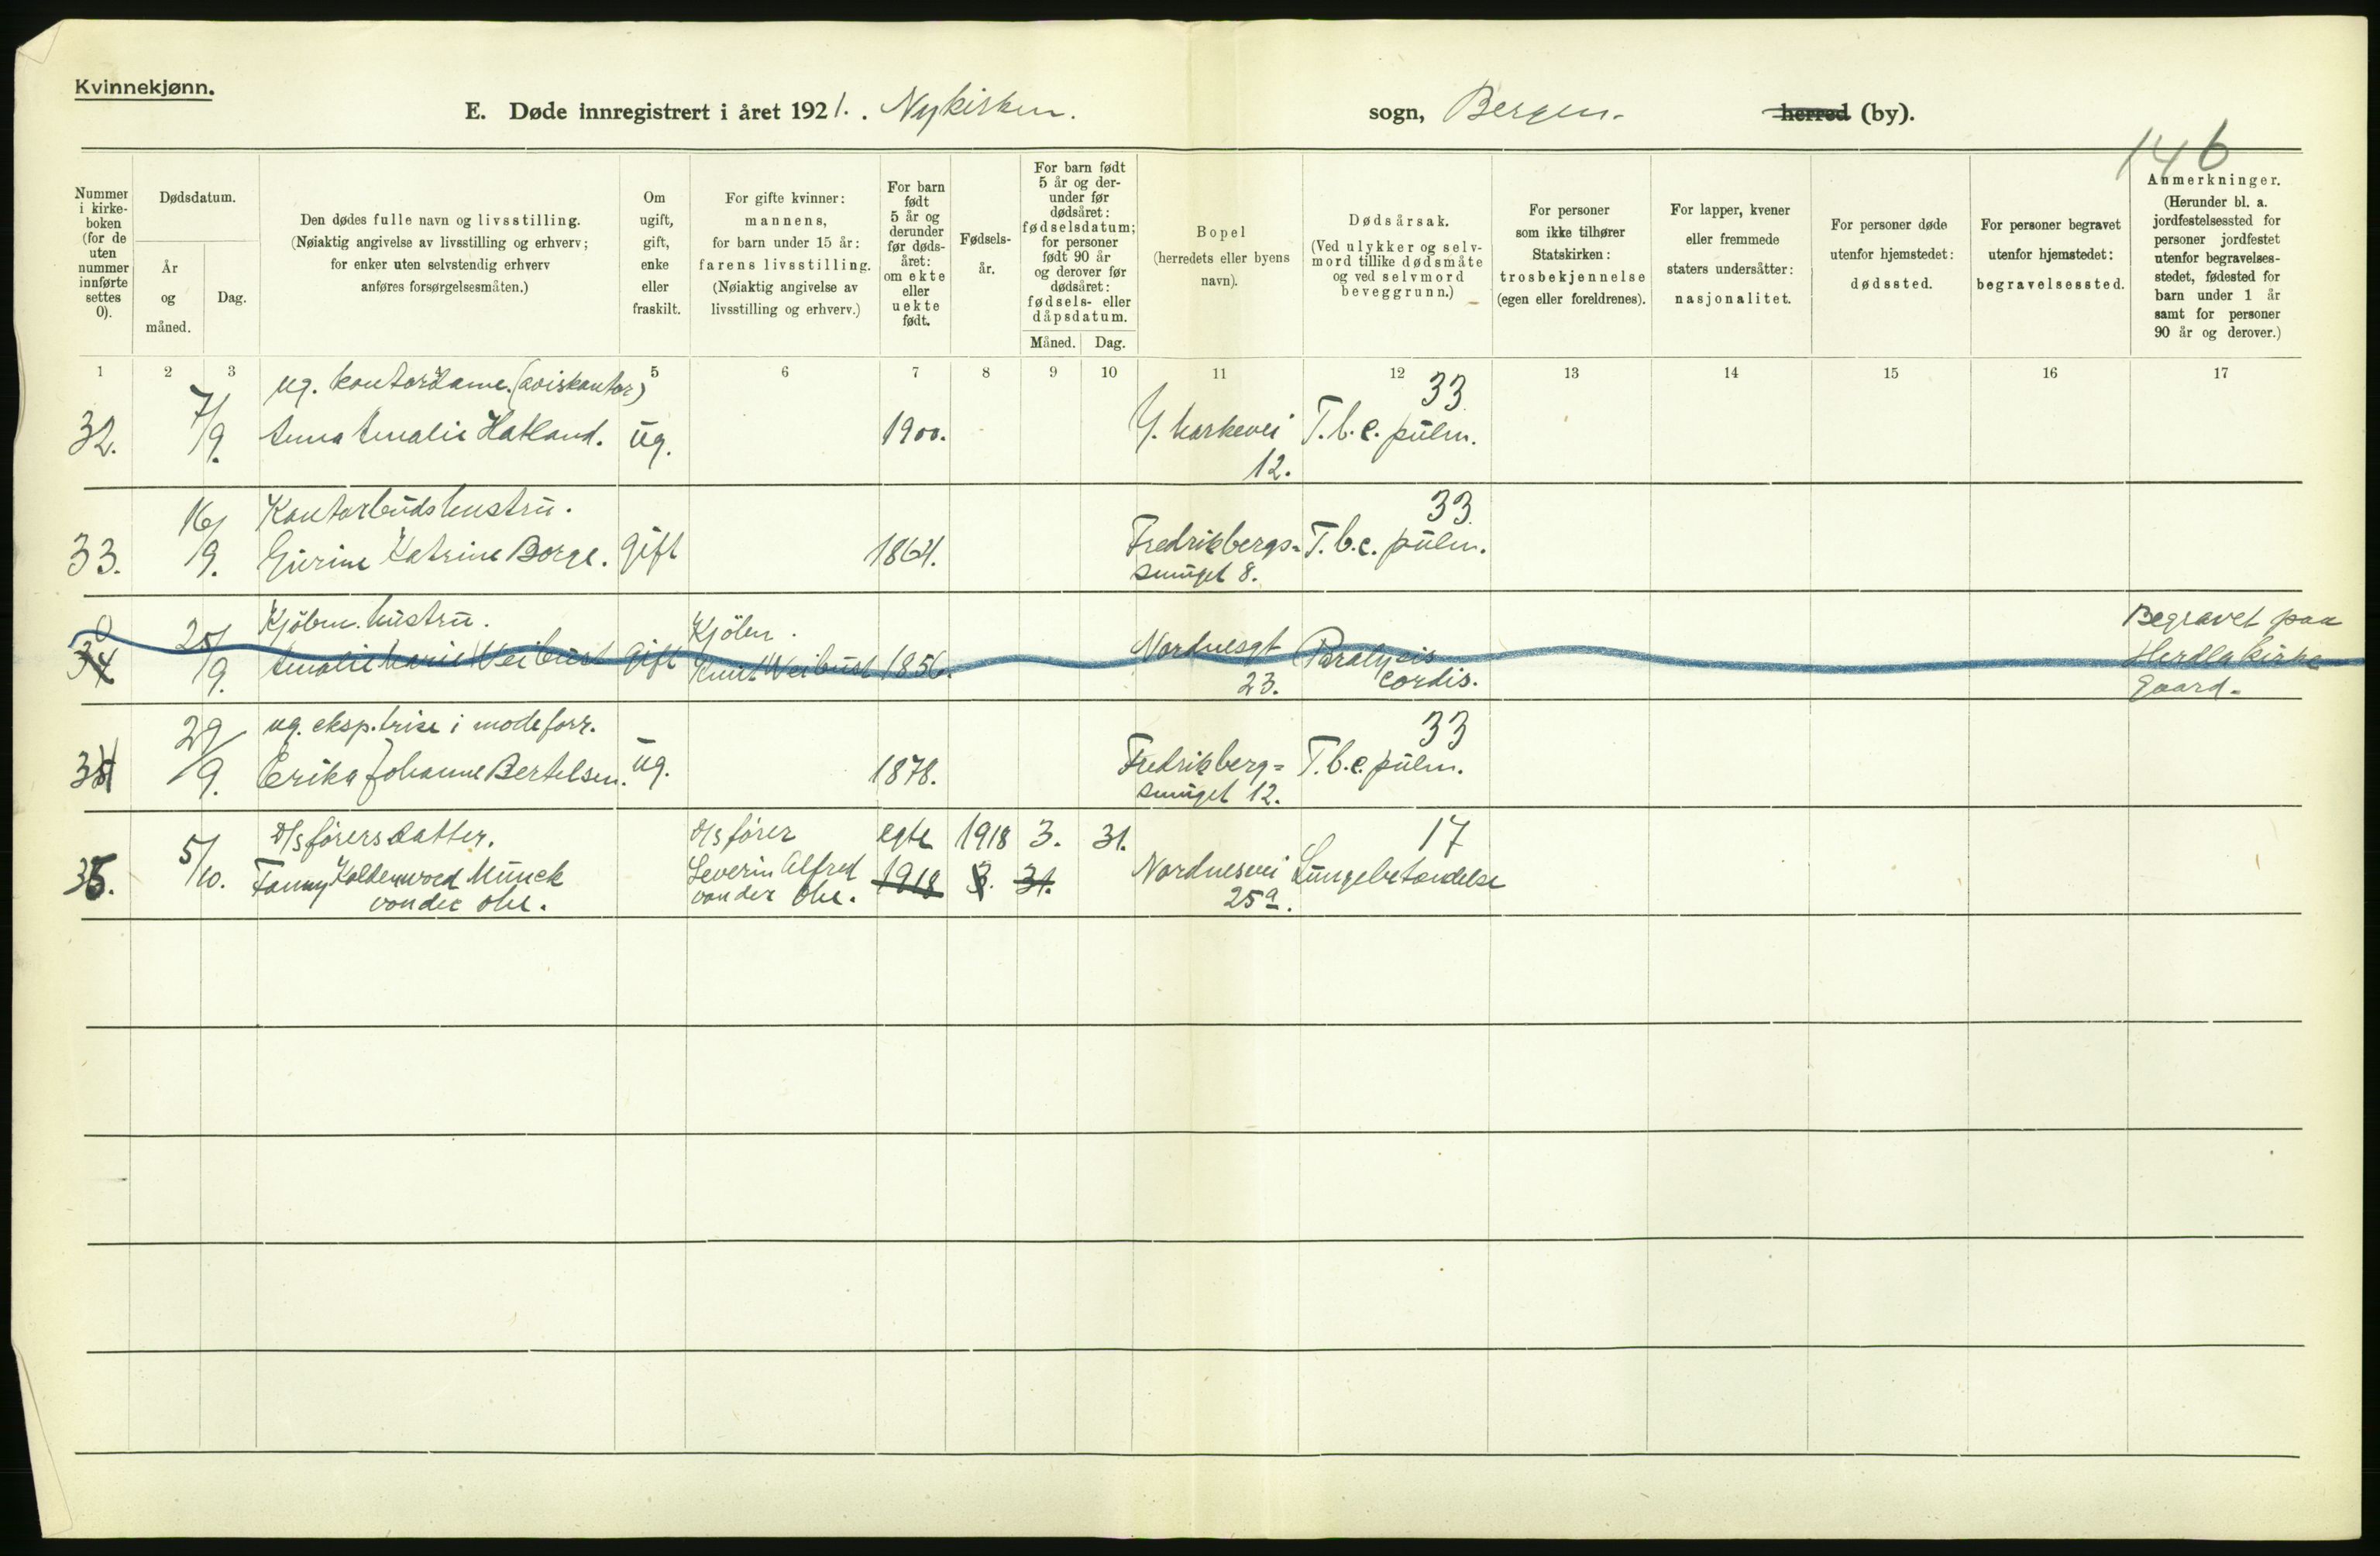 Kvinnekjønn.
E. Døde innregistrert i året 1921. Nykirken. sogn, Bergen. herred (by).
146
Nummer i kirkeboken (for de uten nummer innførte settes 0).
Dødsdatum.
År og måned.
Dag.
Den dødes fulle navn og livsstilling.
(Nøiaktig angivelse av livsstilling og erhverv;
for enker uten selvstendig erhverv
anføres forsørgelsesmåten.)
Om
ugift,
gift,
enke
eller
fraskilt.
For gifte kvinner:
mannens,
for barn under 15 år:
farens livsstilling.
(Nøiaktig angivelse av
livsstilling og erhverv.)
For barn
født
5 år og
derunder
før døds-
året:
om ekte
eller
uekte
født.
Fødsels-
år.
For barn født
5 år og der-
under før
dødsåret:
fødselsdatum;
for personer
født 90 år
og derover før
dødsåret:
fødsels- eller
dåpsdatum.
Måned. Dag.
Bopel
(herredets eller byens
navn).
Dødsårsak.
(Ved ulykker og selv-
mord tillike dødsmåte
og ved selvmord
beveggrunn.)
For personer
som ikke tilhører
Statskirken:
trosbekjennelse
(egen eller foreldrenes).
For lapper, kvener
eller fremmede
staters undersåtter:
nasjonalitet.
For personer døde
utenfor hjemstedet:
dødssted.
For personer begravet
utenfor hjemstedet:
begravelsessted.
Anmerkninger.
(Herunder bl. a.
jordfestelsessted for
personer jordfestet
utenfor begravelses-
stedet, fødested for
barn under 1 år
samt for personer
90 år og derover.)
1 2 3 5 6 7 8 9 10 11 12 13 14 15 16 17
ug. kontordame. (aviskontor) 33
32. 7/9. Anna Amalie Hatland. ug. 1900. Y. Markevei T.b.c. pulm.
12.
Kontorbudshustru. 33
33. 16/9. Gurine Katrine Borge. gift 1864. Fredriksbergs= T.b.c. pulm.
smuget 8.
0 Kjøbm. hustru. Kjøbm. Begravet paa
34 25/9. Amalie Marie Weibust gift Knut Weibust 1856. Nordnesgt Paralysis Herdla kirke
23. cordis. gaard.
29/9. ug. eksp.trise i modeforr. 33
34 Erika Johanne Bertelsen. ug. 1878. Fredrikberg= T.b.c. pulm.
smuget 12.
D/s førers datter. D/s fører egte 1918 3. 31. 17
35. 5/10. Fanny Munck Severin Alfred 1918 3. 31. Nordnesvei Lungebetændelse
von der Ohe. von der Ohe. 25a.